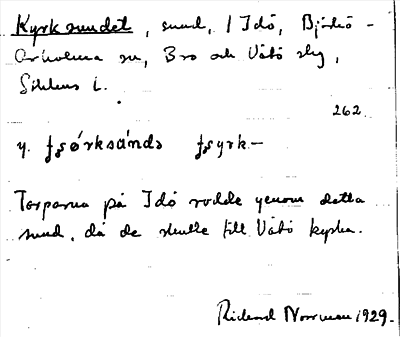 Kyrksundet, sund, / Idö, Björkö-
Arholma sn, Bro och Vätö slg,
Sthlms l.
262.
y. ʃørksúndə ʃyrk-
Torparna på Idö rodde genom detta
sund, då de skulle till Vätö kyrka.
Rickard Norrman 1929.